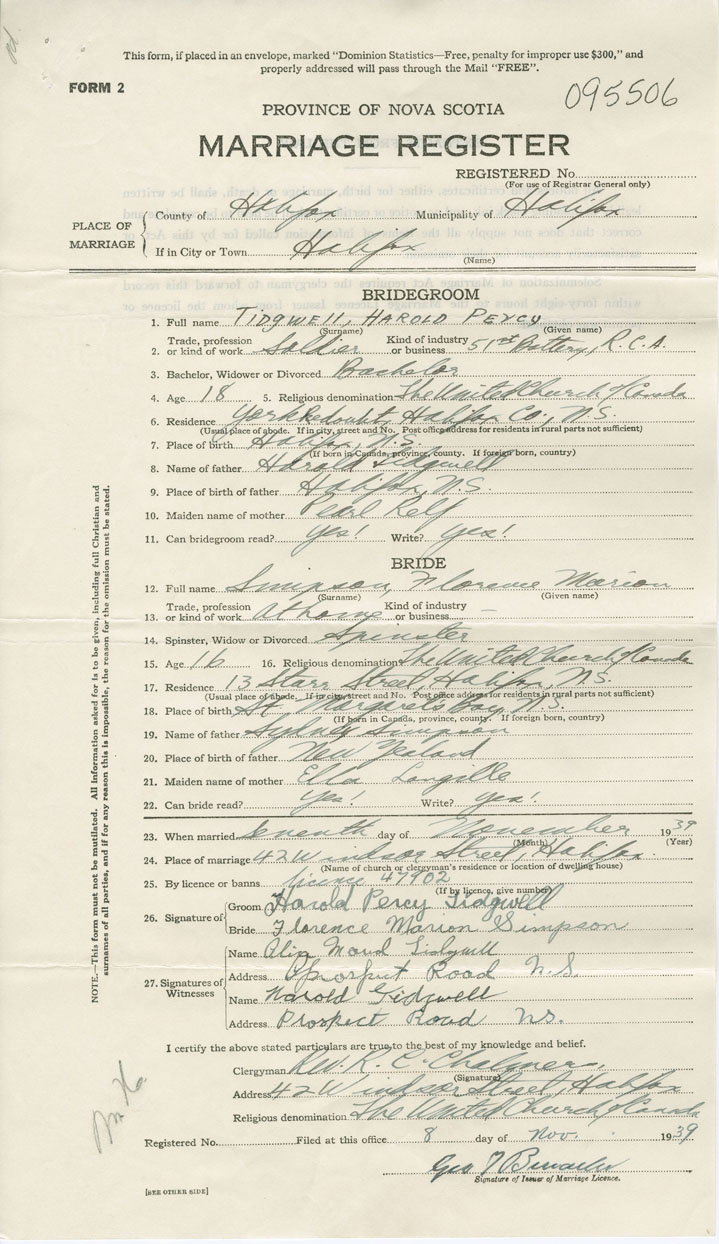 This form, if placed in an envelope, marked "Dominion Statistics—Free, penalty for improper use $300," and
properly addressed will pass through the Mail "FREE".
FORM 2
095506
PROVINCE OF NOVA SCOTIA
MARRIAGE REGISTER
REGISTERED No.
(For use of Registrar General only)
PLACE OF MARRIAGE
County of Halifax Municipality of Halifax
If in City or Town Halifax
(Name)
BRIDEGROOM
1. Full name TIDGWELL, HAROLD PERCY
(Surname) (Given name)
2. Trade, profession or kind of work Soldier Kind of industry or business 51st Battery, R.C.A.
3. Bachelor, Widower or Divorced Bachelor
4. Age 18 5. Religious denomination The United Church of Canada
6. Residence York Redoubt, Halifax Co., N.S.
(Usual place of abode. If in city, street and No. Post office address for residents in rural parts not sufficient)
7. Place of birth Halifax, N.S.
(If born in Canada, province, county. If foreign born, country)
8. Name of father Harold Tidgwell
9. Place of birth of father Halifax, N.S.
10. Maiden name of mother Pearl Relf
11. Can bridegroom read? yes! Write? yes!
BRIDE
12. Full name Simpson, Florence Marion
(Surname) (Given name)
13. Trade, profession or kind of work at home Kind of industry or business —
14. Spinster, Widow or Divorced Spinster
15. Age 16 16. Religious denomination The United Church of Canada
17. Residence 13 Starr Street, Halifax, N.S.
(Usual place of abode. If in city, street and No. Post office address for residents in rural parts not sufficient)
18. Place of birth St. Margarets Bay, N.S.
(If born in Canada, province, county. If foreign born, country)
19. Name of father Sydney Simpson
20. Place of birth of father New Zealand
21. Maiden name of mother Ella Langille
22. Can bride read? yes! Write? yes!
23. When married seventh day of November 1939
(Month) (Year)
24. Place of marriage 42 Windsor Street, Halifax.
(Name of church or clergyman's residence or location of dwelling house)
25. By licence or banns licence 47902
(If by licence, give number)
26. Signature of
Groom Harold Percy Tidgwell
Bride Florence Marion Simpson
27. Signatures of Witnesses
Name Maud Tidgwell
Address Prospect Road N.S.
Name Harold Tidgwell
Address Prospect Road NS.
I certify the above stated particulars are true to the best of my knowledge and belief.
Clergyman Rev. R. E. Chalmers.
(Signature)
Address 42 Windsor Street, Halifax
Religious denomination The United Church of Canada
Registered No. Filed at this office 8 day of Nov. 1939
Geo
Signature of Issuer of Marriage Licence.
[SEE OTHER SIDE]
NOTE.—This form must not be mutilated. All Information asked for is to be given, including full Christian and
surnames of all parties, and if for any reason this is impossible, the reason for the omission must be stated.